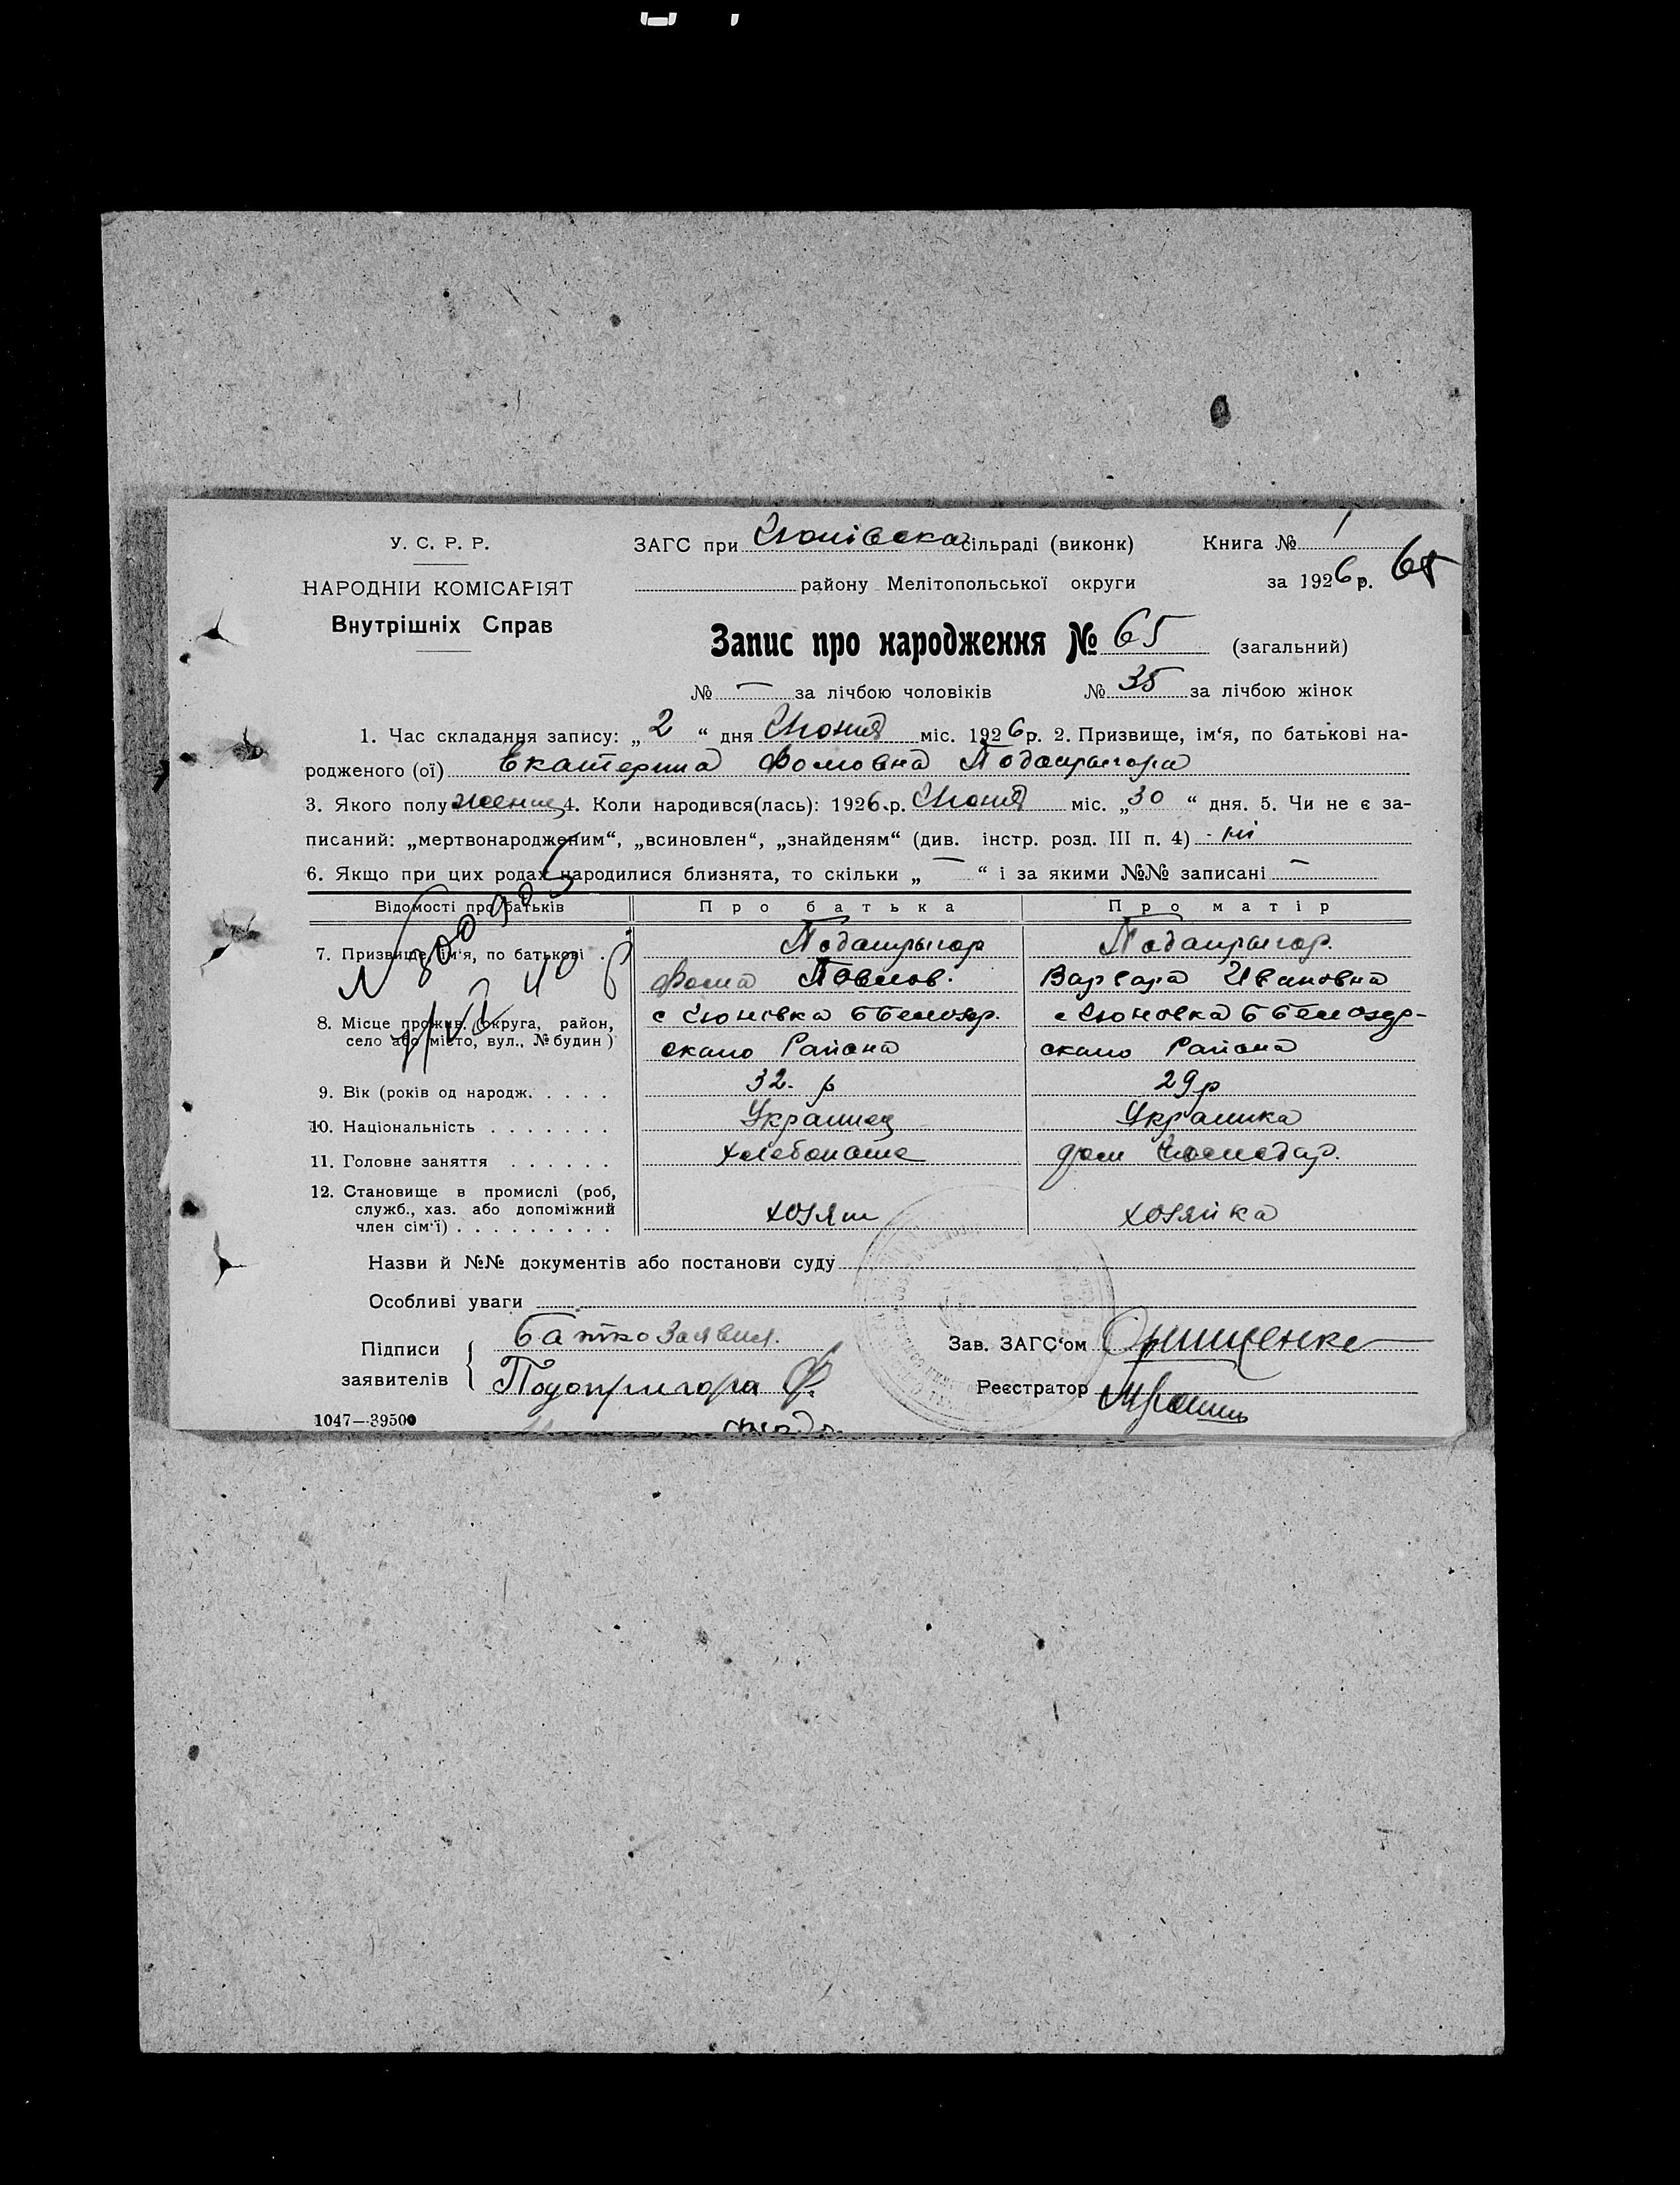 У. С. Р. Р.
НАРОДНІЙ КОМІСАРІЯТ
Внутрішніх Справ
ЗАГС при сільраді (виконк)
Книга № 1
району Мелітопольської округи
за 1926 р. 65
Запис про народження № 65 (загальний)
№ — за лічбою чоловіків № 35 за лічбою жінок
1. Час складання запису: „2“ дня Июния міс. 1926 р. 2. Призвище, ім‘я, по батькові на-
родженого (ої) Екатерина Фомовна Подапригора
3. Якого полу женщ 4. Коли народився(лась): 1926 р. Июния міс. „30“ дня. 5. Чи не є за-
писаний: „мертвонародженим“, „всиновлен“, „знайденям“ (див. інстр. розд. III п. 4) - ні
6. Якщо при цих родах народилися близнята, то скільки „—“ і за якими №№ записані —
Відомості про батьків Про батька Про матір
7. Призвище, ім‘я, по батькові Подапригор Подапригор.
Фома Павлов. Варвара Ивановна
8. Місце прожив. (округа, район,
село або місто, вул., № будин)
с Б Белозер. с Б Белозер-
скаго Района скаго Района
9. Вік (років од народж. 32. р 29 р
10. Національність Украинец Украинка
11. Головне заняття Хлебопаше дом Господар.
12. Становище в промислі (роб,
служб., хаз. або допоміжний
член сім‘ї) хозяин хозяйка
Назви й №№ документів або постанови суду
Особливі уваги
Підписи
заявителів
Батко Заявил.
Подопригора Ф.
Зав. ЗАГС‘ом
Реєстратор
1047—39500